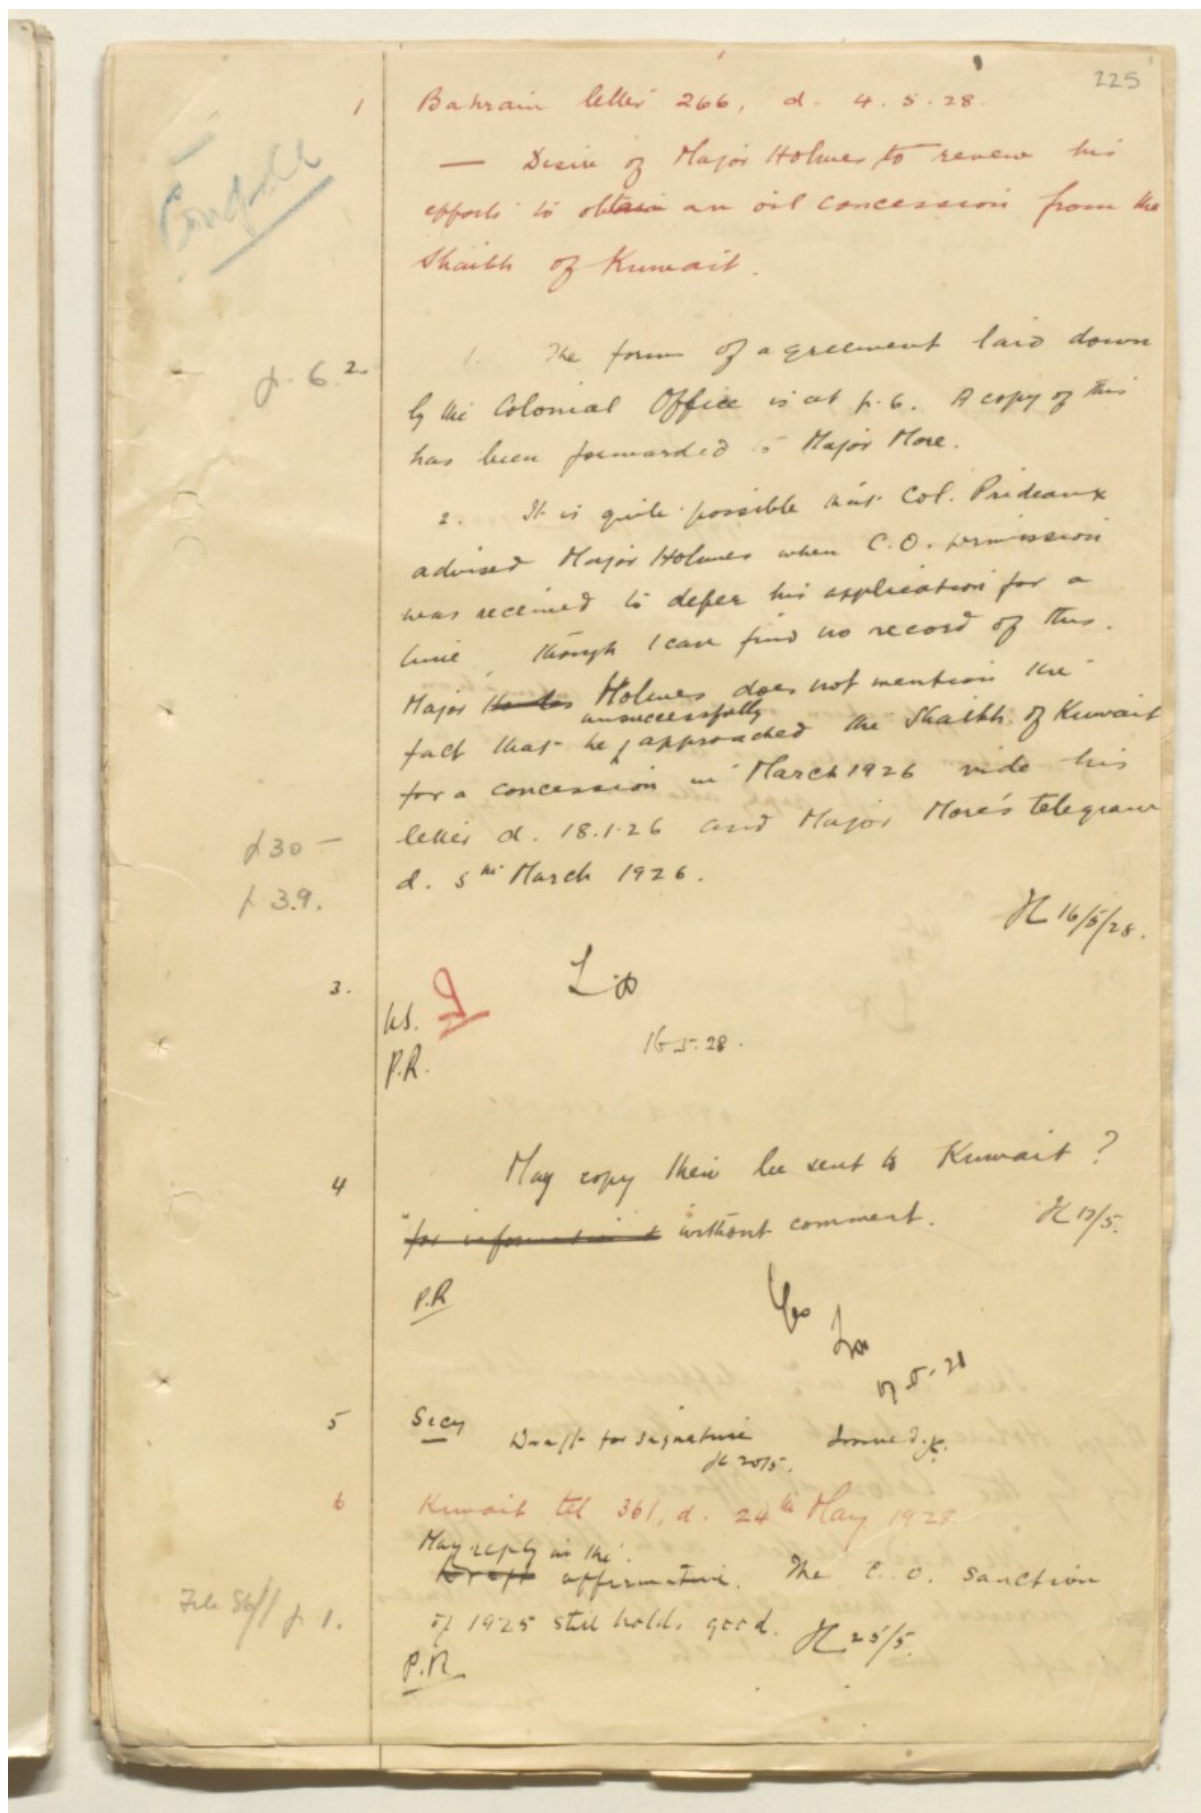 225
1 Bahrain letter 266, d. 4.5.28.
— Desire of Major Holmes to renew his
efforts to obtain an oil concession from the
Shaikh of Kuwait.
Confdl
p. 6. 2. 1. The form of agreement laid down
by the Colonial Office is at p. 6. A copy of this
has been forwarded to Major More.
2. It is quite possible that Col. Prideaux
advised Major Holmes when C.O. permission
was received to defer his application for a
time, though I can find no record of this.
Major Holmes does not mention the
unsuccessfully
fact that he approached the Shaikh of Kuwait
for a concession in March 1926 vide his
letter d. 18.1.26 and Major More's telegram
p 30 —
d. 5th March 1926.
p 39.
16/5/28.
3.
U.S.
16.5.28.
P.R.
4 May copy then be sent to Kuwait?
"for information &" without comment. 17/5.
P.R
Yes
17.5.28
5 Secy Draft for signature Issued.
20/5.
6 Kuwait tel 361, d. 24th May 1928.
May reply in the
Draft affirmative. The C.O. sanction
File 86/1 p 1. of 1925 still holds good. 25/5.
P.R